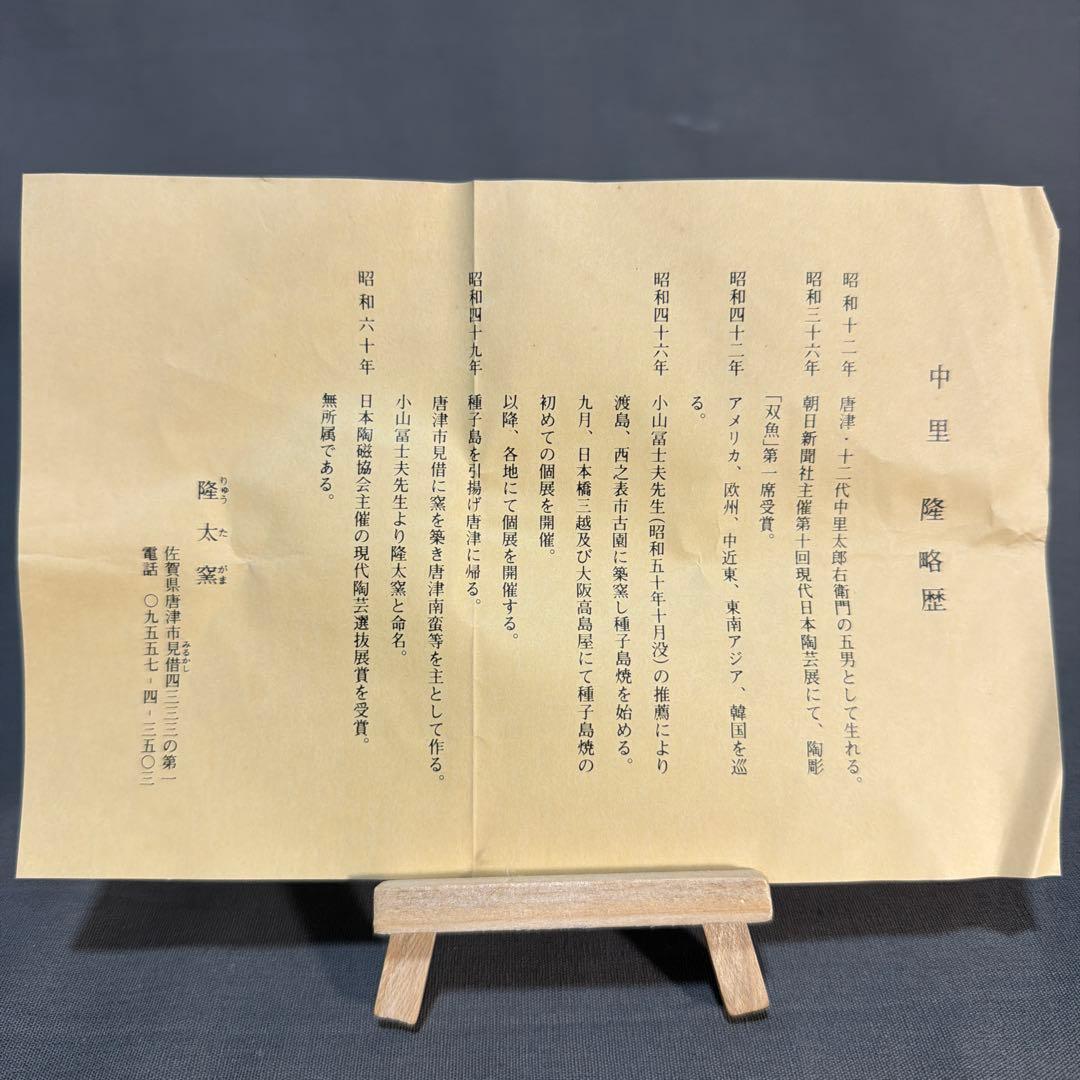 中里 隆 略歴
昭和十二年 唐津・十二代中里太郎右衛門の五男として生れる。
昭和三十六年 朝日新聞社主催第十回現代日本陶芸展にて、陶彫
「双魚」第一席受賞。
昭和四十二年 アメリカ、欧州、中近東、東南アジア、韓国を巡
る。
昭和四十六年 小山冨士夫先生(昭和五十年十月没)の推薦により
渡島、西之表市古園に築窯し種子島焼を始める。
九月、日本橋三越及び大阪高島屋にて種子島焼の
初めての個展を開催。
以降、各地にて個展を開催する。
昭和四十九年 種子島を引揚げ唐津に帰る。
唐津市見借に窯を築き唐津南蛮等を主として作る。
小山冨士夫先生より隆太窯と命名。
昭和六十年 日本陶磁協会主催の現代陶芸選抜展賞を受賞。
無所属である。
隆太窯
りゅうたがま
佐賀県唐津市見借四三三三の第一
みるかし
電話 〇九五五七-四-三五〇三